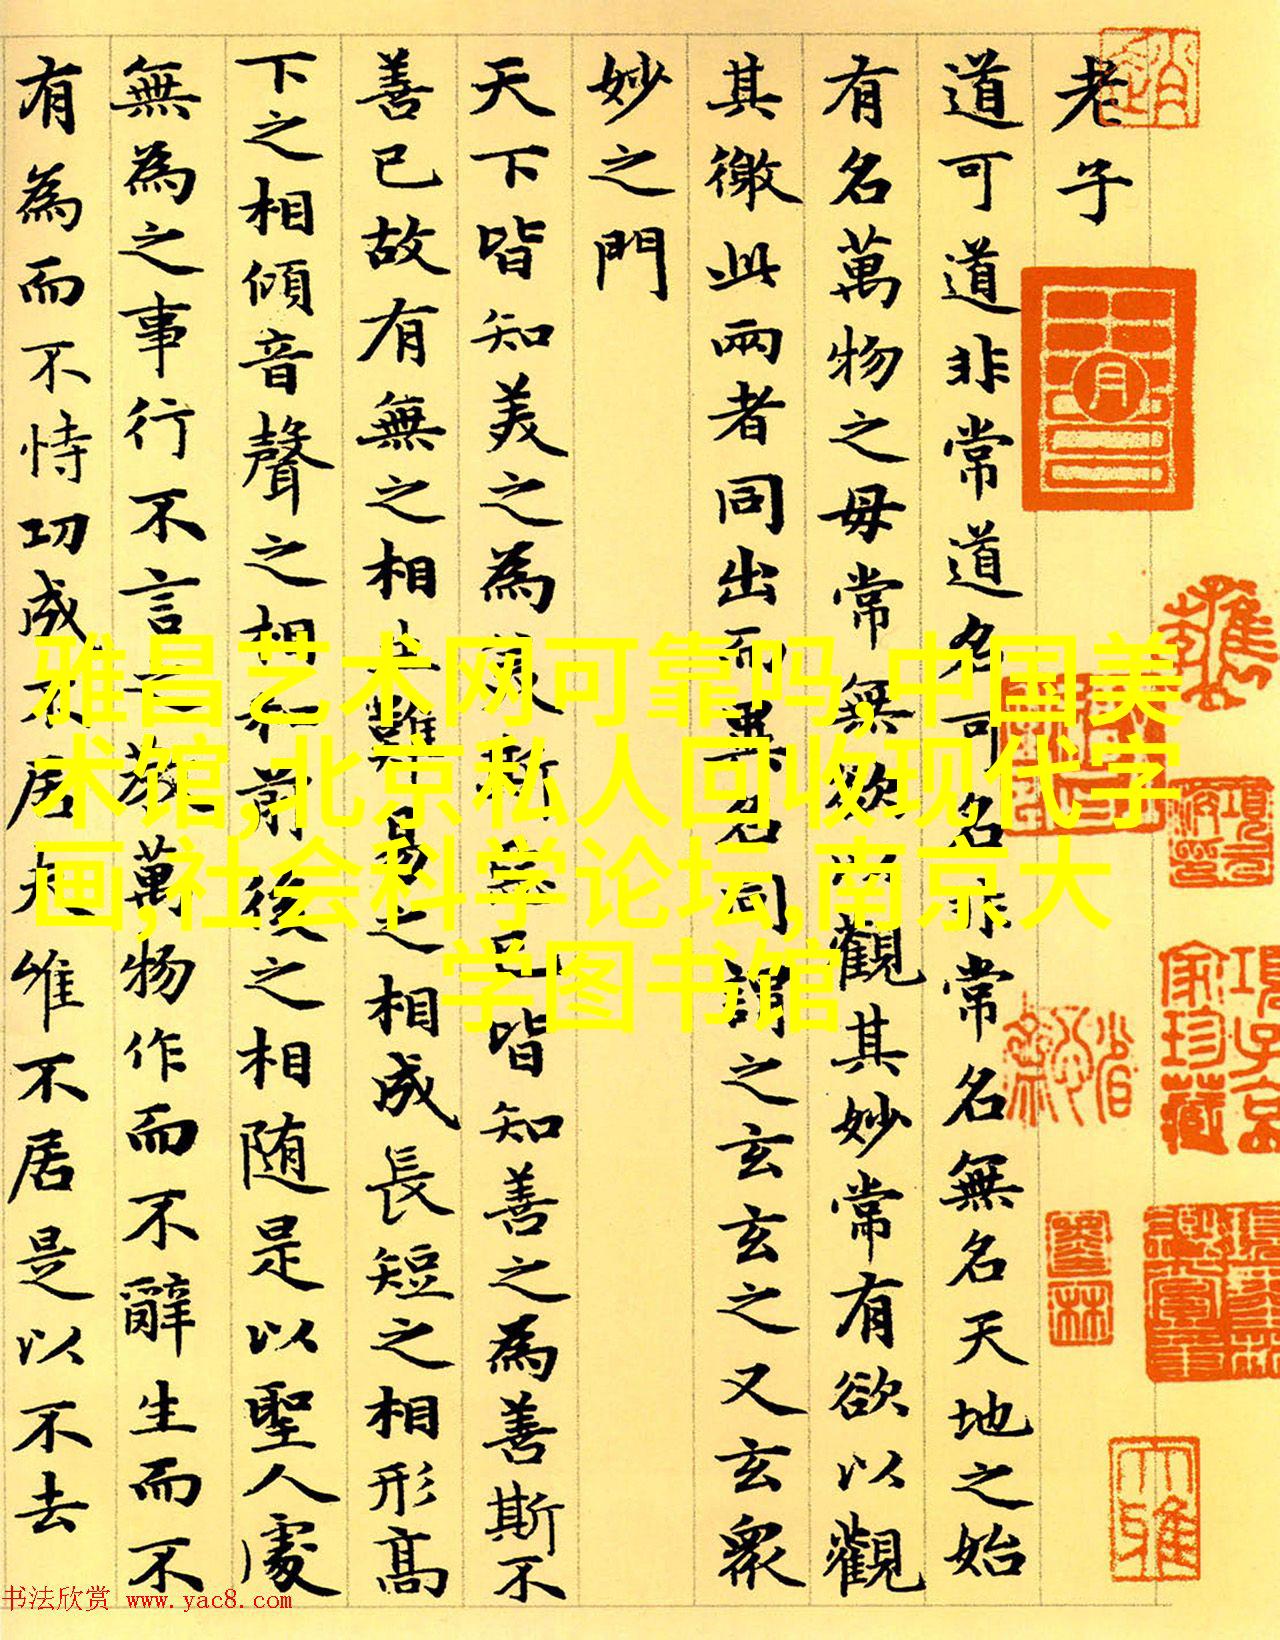 老子
道可道非常道名可名非常名無名天地之始
有名萬物之毋常無欲以觀其妙常有欲以觀
其徼此兩者同出而異名同謂之玄玄之又玄衆
妙之門
天下皆知美之為美斯惡已皆知善之為善斯不
善已故有無之相生難易之相成長短之相形髙
下之相傾音聲之相和前後之相随是以聖人處
無為之事行不言之教萬物作而不辭生而不
有為而不恃功成不居夫唯不居是以不去
雅昌艺术网可靠吗,中国美
术馆,北京私人回收现代字
画,社会科学论坛,南京大
学图书馆
項子京
家珍藏
大雅
书法欣赏 www.yac8.com